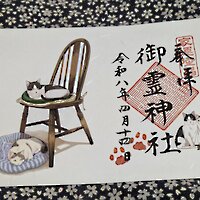 奉拝
御霊神社
令和八年四月十四日